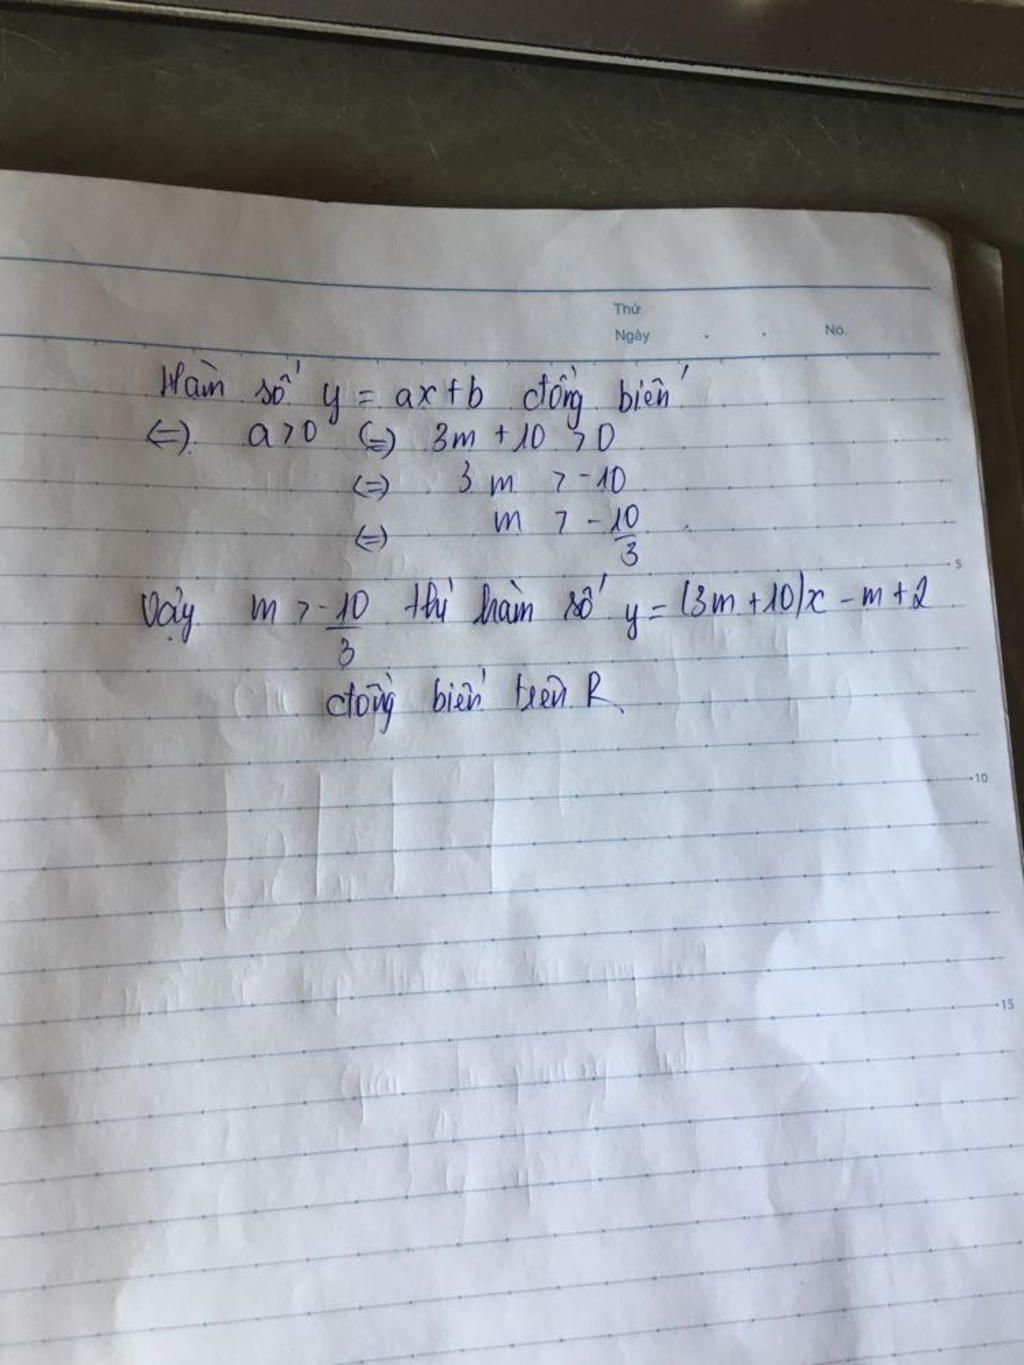 Thứ
Ngày . . No.
Hàm số y = ax+b đồng biến
<=>. a>0 <=> 3m +10 >0
<=> 3m > -10
<=> m > -10/3
5
Vậy m > -10/3 thì hàm số y = (3m+10)x - m+2
đồng biến trên R.
10
15